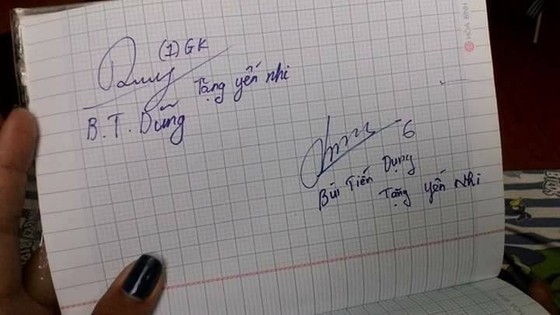 (1) GK
Tặng yến nhi
B. T. Dũng
6
Bùi Tiến Dụng
Tặng yến Nhi